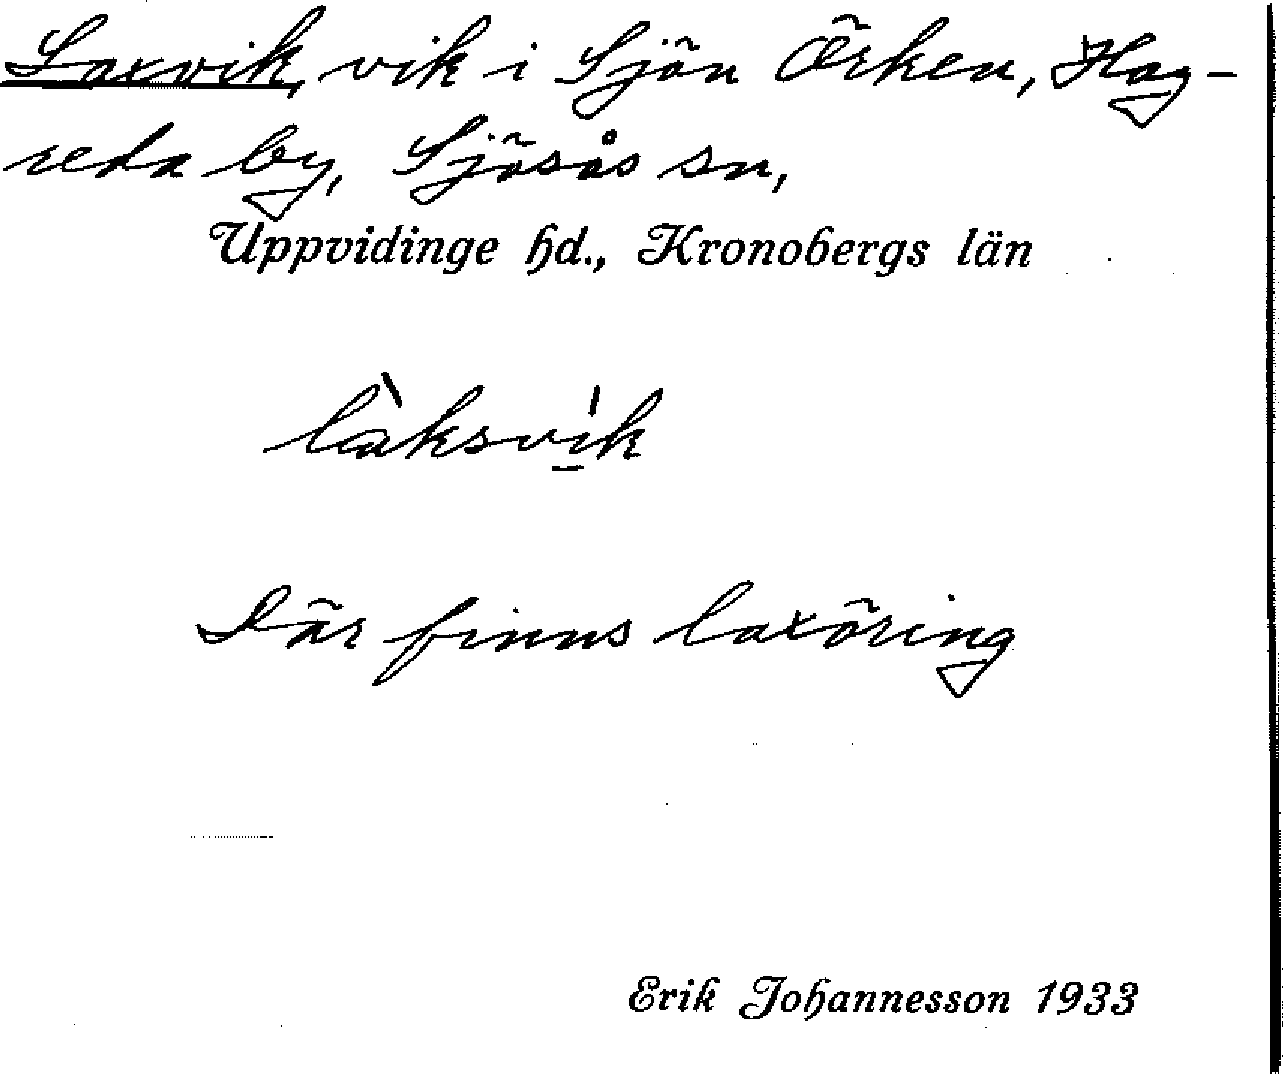 Laxvik, vik i Sjön Örken, Hag-
reda by, Sjösås sn,
Uppvidinge hd., Kronobergs län
làksvi̠k
Där finns laxöring
Erik Johannesson 1933